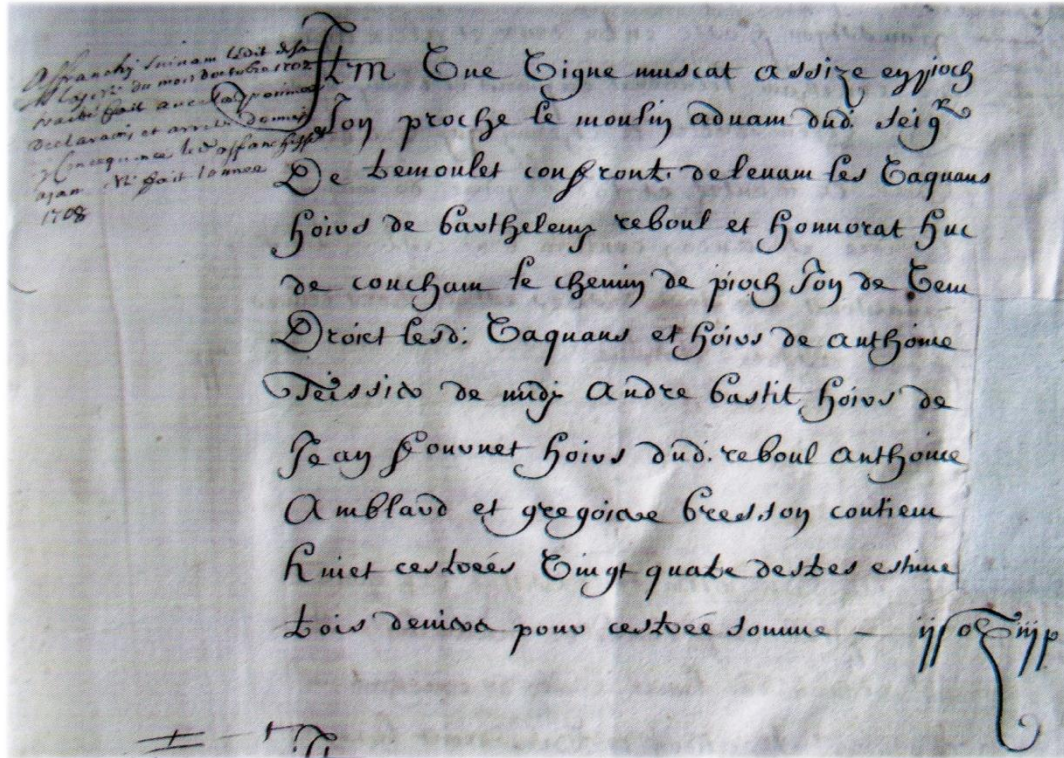 Affranchy suivant ledit de sa
du mois doctobre 1702
traité fait avec la province
declaration et arrest
consequence led affranchissem
fait lannee
1708
Itm Une Vigne muscat assize en pioch
Jon proche le moulin advam dud. seigr
De tremoulet confront. de levam les Vaquans
hoirs de barthelemy reboul et honnorat huc
de coucham le chemin de pioch Jon de Vem
Droict lesd: Vaquans et hoirs de anthoine
Teissier de midy Andre bastit hoirs de
Jean fournet hoirs dud. reboul anthoine
Amblard et gregoire bresson contiem
huict cesterées Vingt quatre destres estime
trois deniers pour cesterée somme –